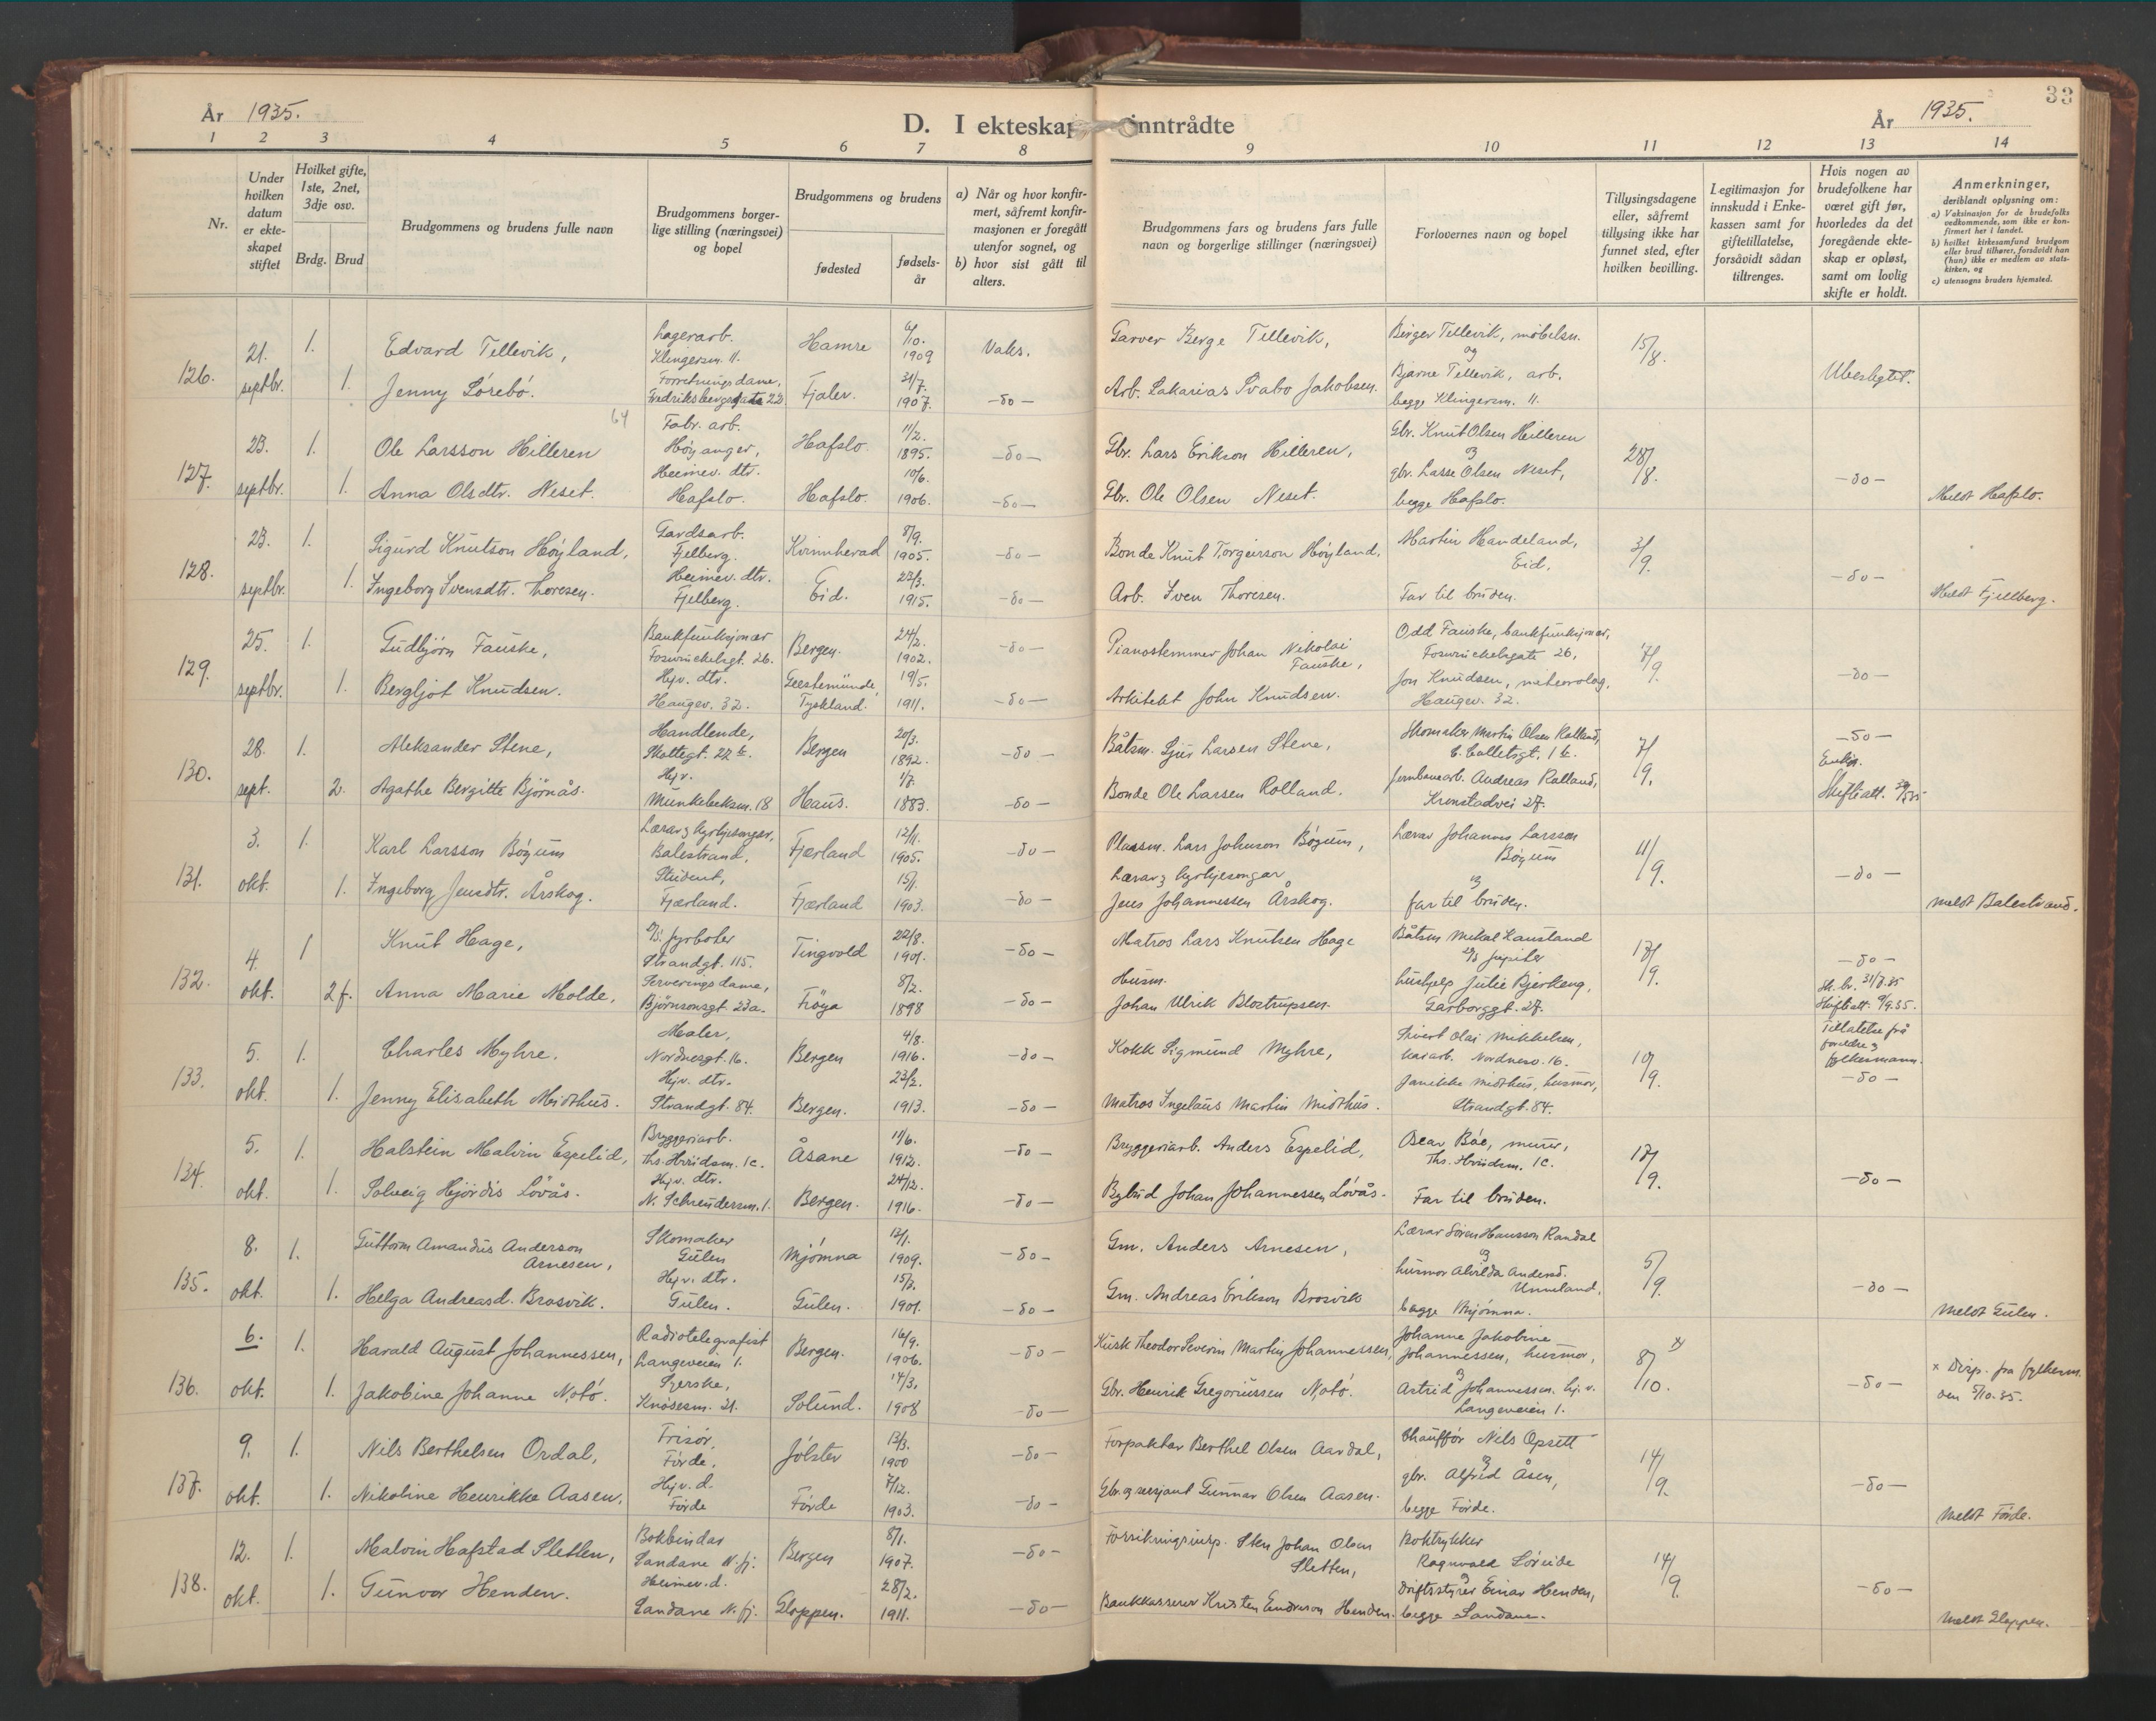 År 1935.
D. I ekteskap inntrådte
År 1935.
33
1 2 3 4 5 6 7 8 9 10 11 12 13 14
Nr.
Under hvilken datum er ekteskapet stiftet
Hvilket gifte, 1ste, 2net, 3dje osv.
Brdg. Brud
Brudgommens og brudens fulle navn
Brudgommens borgerlige stilling (næringsvei) og bopel
Brudgommens og brudens
fødested
fødselsår
a) Når og hvor konfirmert, såfremt konfirmasjonen er foregått utenfor sognet, og
b) hvor sist gått til alters.
Brudgommens fars og brudens fars fulle navn og borgerlige stillinger (næringsvei)
Forlovernes navn og bopel
Tillysingsdagene eller, såfremt tillysing ikke har funnet sted, efter hvilken bevilling.
Legitimasjon for innskudd i Enkekassen samt for giftetillatelse, forsåvidt sådan tiltrenges.
Hvis nogen av brudefolkene har været gift før, hvorledes da det foregående ekteskap er opløst, samt om lovlig skifte er holdt.
Anmerkninger, deriblandt oplysning om:
a) Vaksinasjon for de brudefolks vedkommende, som ikke er konfirmert her i landet.
b) hvilket kirkesamfund brudgom eller brud tilhører, forsåvidt han (hun) ikke er medlem av statskirken, og
c) utensogns bruders hjemsted.
126. 21. septbr. 1. Edvard Tellevik, Lagerarb. Klingersm. 11. Hamre 6/10. 1909 Vaks. Garver Berge Tellevik, Birger Tellevik, møbelsn. og 15/8. Ubeslegtet.
1. Jenny Sørebø. Forretningsdame, Fredriksbergsgate 22 Fjaler. 31/7. 1907. -do- Arb. Sakarias Svabø Jakobsen. Bjarne Tellevik, arb. begge Klingersm. 11.
64
127. 23. septbr. 1. Ole Larsson Hilleren Fabr. arb. Høyanger, Hafslo. 11/2. 1895. -do- Gbr. Lars Erikson Hilleren, Gbr. Knut Olsen Hilleren og 28/8. -do-
1. Anna Olsdtr. Neset. Heimev. dtr. Hafslo. Hafslo. 10/6. 1906. -do- Gbr. Ole Olsen Neset. gbr. Lasse Olsen Neset, begge Hafslo. Meldt Hafslo.
128. 23. septbr. 1. Sigurd Knutson Høyland, Gardsarb. Fjelberg. Kvinnherad 8/9. 1905. -do- Bonde Knut Torgeirson Høyland, Martin Handeland, Eid. 3/9. -do-
1. Ingeborg Svensdtr. Thoresen. Heimev. dtr. Fjelberg. Eid. 23/3. 1915. -do- Arb. Sven Thoresen. Far til bruden. Meldt Fjellberg.
129. 25. septbr. 1. Gudbjørn Fauske, Bankfunksjonær Foswinckelsgt. 26. Bergen. 24/2. 1902. -do- Pianostemmer Johan Nikolai Fauske, Odd Fauske, bankfunksjonær, Foswinckelsgate 26, 7/9. -do-
1. Bergljot Knudsen. Hjv. dtr. Haugev. 32. Geestemünde, Tyskland. 19/5. 1911. -do- Arkitekt John Knudsen. Jon Knudsen, meteorolog, Haugev. 32.
130. 28. sept. 1. Aleksander Stene, Handlende, Skottegt. 22 b. Bergen 20/3. 1892. -do- Båtsm. Sjur Larsen Stene, Skomaker Martin Olsen Rolland, C. Colletsgt. 1 b. 7/9. -do-
2. Agathe Bergitte Bjørnås. Hjv. Munkebeksm. 18 Haus. 1/7. 1883. -do- Bonde Ole Larsen Rolland. Jernbanearb. Andreas Rolland, Kronstadvei 27. Enke. Skifteatt.
131. 3. okt. 1. Karl Larsson Bøyum Lærar og kyrkjesongar, Balestrand, Fjærland 12/11. 1905. -do- Plassm. Lars Johnson Bøyum, Lærar Johannes Larsson Bøyum og 11/9. -do-
1. Ingeborg Jensdtr. Årskog. Student, Fjærland. Fjærland 15/1. 1903. -do- Lærar og kyrkjesongar Jens Johannessen Årskog. far til bruden. Meldt Balestrand.
132. 4. okt. 1 Knut Hage, D/S fyrbøter Strandgt. 115. Tingvold 22/8. 1901. -do- Matros Lars Knutsen Hage Båtsm Mikal Kausland D/S Jupiter 13/9. -do-
2 f. Anna Marie Molde, Serveringsdame, Bjørnsonsgt. 23a. Frøya 8/2. 1898 -do- Husm. Johan Ulrik Blostrupsen. hushjelp Julie Bjerkeng, Garborggt. 27. Sk. br. 31/7.35 Skifteatt. 9/9.35.
133. 5. okt. 1. Charles Myhre. Maler, Nordnesgt. 16. Bergen 4/8. 1916. -do- Kokk Sigmund Myhre, Sivert Olai Mikkelsen, havarb. Nordnesv. 16. 10/9. Tillatelse frå foreldre og fylkesmann.
1. Jenny Elisabeth Midthus. Hjv. dtr. Strandgt. 84. Bergen. 23/2. 1913. -do- Matros Ingelaus Martin Midthus. Janikke Midthus, husmor, Strandgt. 84. -do-
134. 5. okt. 1. Halstein Malvin Espelid, Bryggeriarb. Ths. Hviidsm. 1c. Åsane 11/6. 1912. -do- Bryggeriarb. Anders Espelid, Oscar Bøe, murer, Ths. Hviidsm. 1c. 17/9. -do-
1. Solveig Hjørdis Løvås. Hjv. dtr. N. Schreudersm. 1. Bergen. 24/12. 1916. -do- Bybud Johan Johannessen Løvås. Far til bruden.
135. 8. okt. 1. Guttorm Amandus Anderson Arnesen, Skomaker Gulen Mjømna 12/1. 1909. -do- Gm. Anders Arnesen, Lærar Søren Hansson Randal og 5/9. -do-
1. Helga Andreasd. Brosvik. Hjv. dtr. Gulen. Gulen. 15/3. 1901. -do- Gm. Andreas Erikson Brosvik husmor Alvilda Andersd. Unneland, begge Mjømna. Meldt Gulen.
136. 6. okt. 1. Harald August Johannessen, Radiotelegrafist Langeveien 1. Bergen. 16/9. 1906. -do- Kusk Theodor Severin Martin Johannessen, Johanne Jakobine Johannessen, husmor, og 8/10. x -do- x Disp. fra fylkesm. den 5/10.35.
1. Jakobine Johanne Notø. Syerske, Knøsesm. 21. Solund. 14/3. 1908 -do- Gbr. Henrik Gregoriussen Notø. Astrid Johannessen. hj. v. Langeveien 1.
137. 9. okt. 1. Nils Berthelsen Ordal, Frisør, Førde, Jølster 13/3. 1900 -do- Forpaktar Berthel Olsen Aardal, Chauffør Nils Opsett og 14/9. -do-
1. Nikoline Henrikke Aasen. Hjv. d. Førde Førde 7/12. 1903. -do- Gbr. og sersjant Gunnar Olsen Aasen. gbr. Alfred Åsen, begge Førde. Meldt Førde.
138. 12. okt. 1. Malvin Hafstad Sletten, Bokbindar Sandane N.fj. Bergen 8/1. 1907. -do- Forsikringsinsp. Sten Johan Olsen Sletten, Boktrykker Ragnvald Søreide og 14/9. -do-
1. Gunvor Henden. Heimev. d. Sandane N.fj. Gloppen. 28/2. 1911. -do- Bankkasserer Kristen Endreson Henden. Driftsstyrer Einar Henden, begge Sandane. Meldt Gloppen.